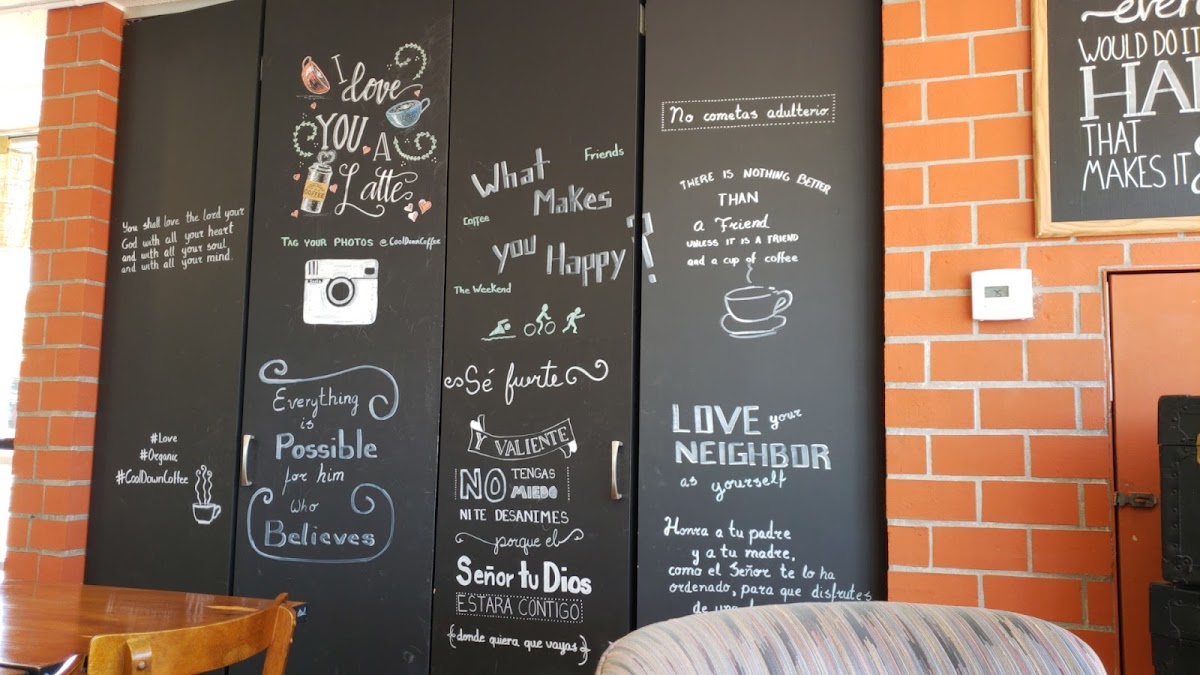 You shall love the lord your
God with all your heart
and with all your soul
and with all your mind.
#Love
#Organic
#CoolDownCoffee
I
love
YOU A
Latte
TAG YOUR PHOTOS @CoolDownCoffee
Everything
is
Possible
for him
Who
Believes
Friends
What
Makes
Coffee
you Happy?
The Weekend
Sé fuerte
Y VALIENTE
NO TENGAS
MIEDO
NI TE DESANIMES
porque el
Señor tu Dios
ESTARA CONTIGO
{donde quiera que vayas}
No cometas adulterio.
THERE IS NOTHING BETTER
THAN
a Friend
UNLESS IT IS A FRIEND
and a cup of coffee
LOVE your
NEIGHBOR
as yourself
Honra a tu padre
y a tu madre,
como el Señor te lo ha
ordenado, para que disfrutes
de
WOULD DO IT
THAT
MAKES IT